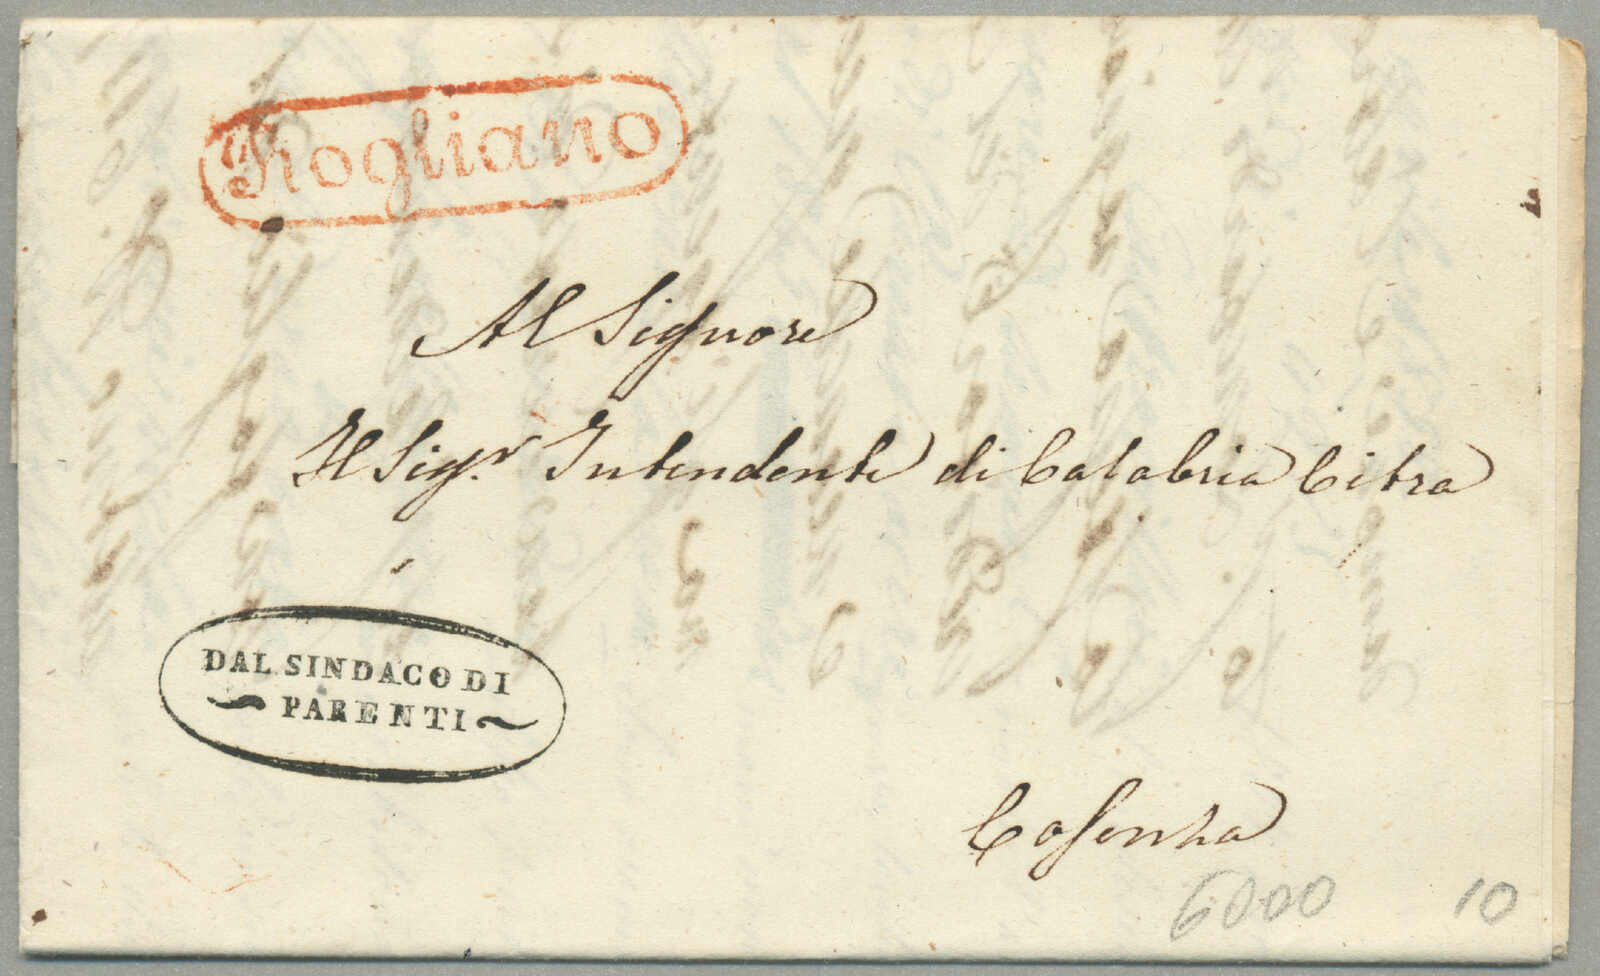 Rogliano
Al Signore
Il Sig.r Intendente di Calabria Citra
DAL SINDACO DI
PARENTI
Cosenza
6000
10